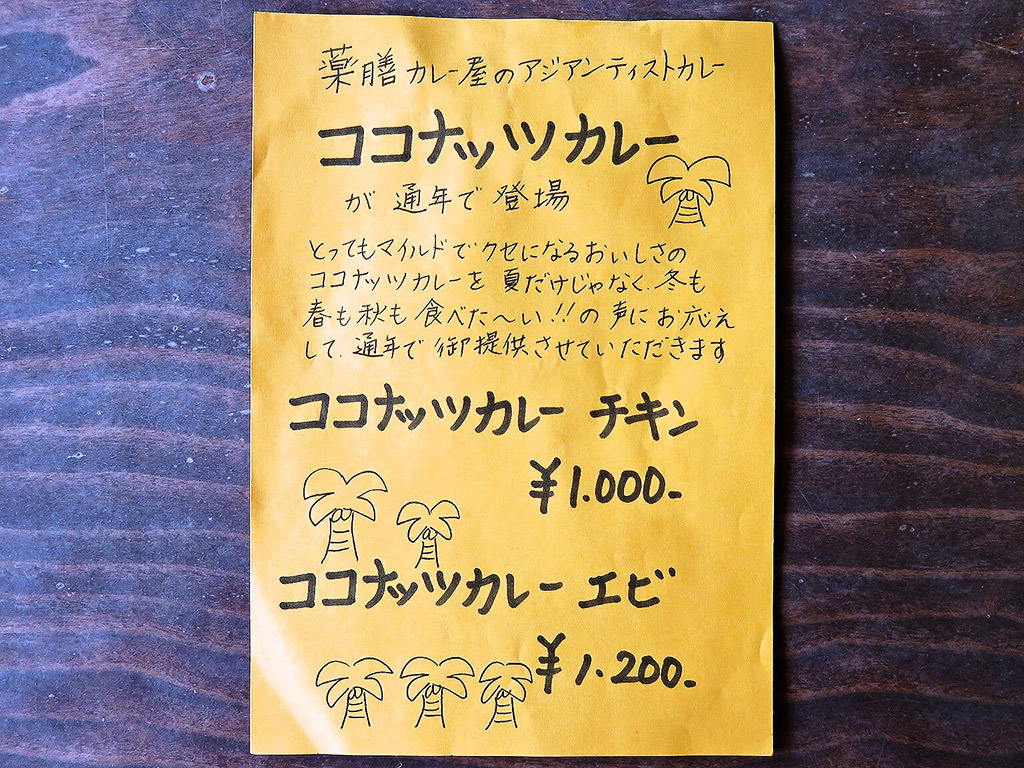 薬膳カレー屋のアジアンティストカレー
ココナッツカレー
が通年で登場
とってもマイルドでクセになるおいしさの
ココナッツカレーを夏だけじゃなく、冬も
春も秋も食べた〜い!!の声にお応え
して、通年で御提供させていただきます
ココナッツカレー チキン
¥1.000-
ココナッツカレー エビ
¥1.200-